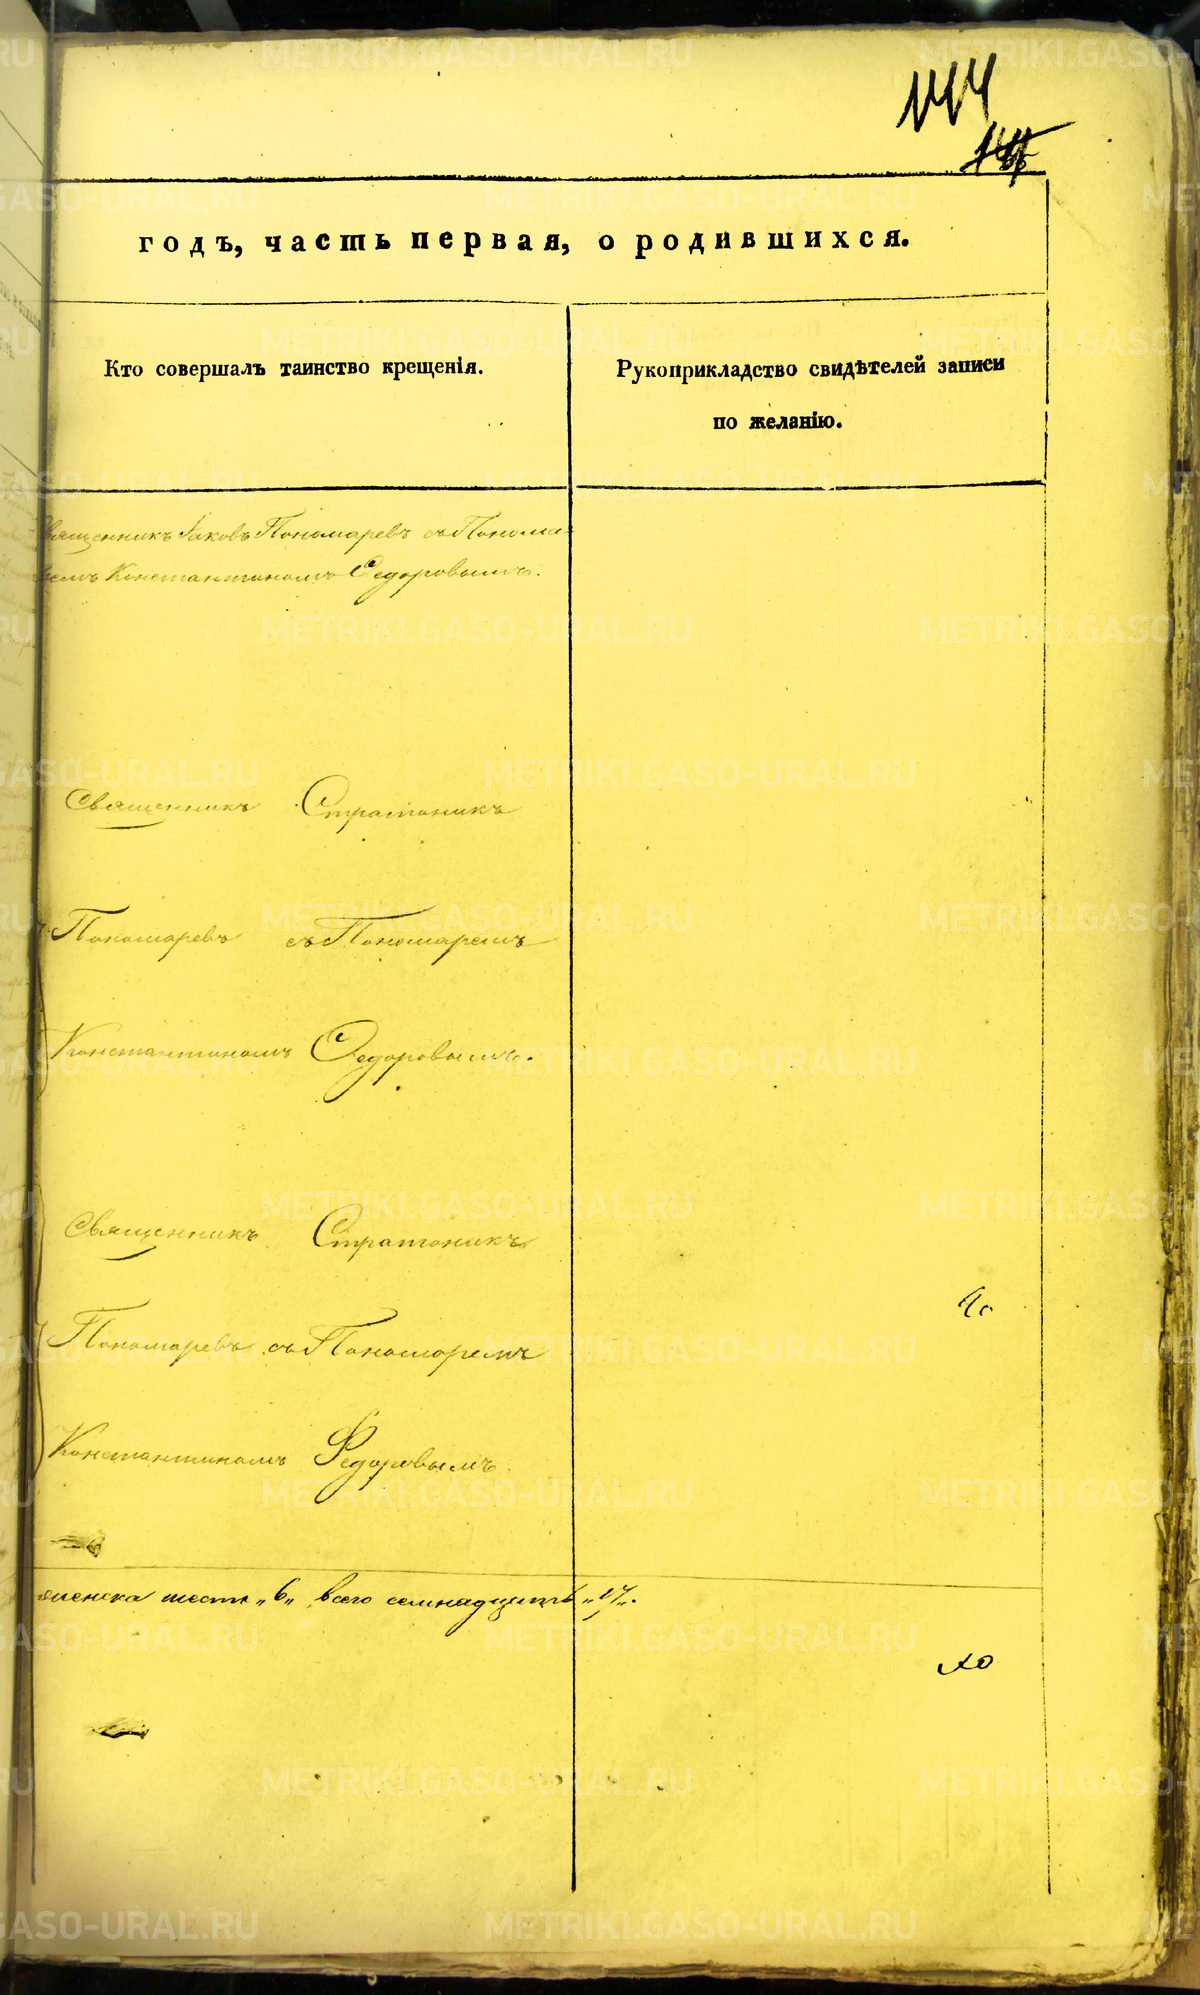 144
годъ, часть первая, о родившихся.
Кто совершалъ таинство крещенія.
Рукоприкладство свидѣтелей записи
по желанію.
Священникъ Іаковъ Пономаревъ съ Понома-
ремъ Константиномъ Ѳедоровымъ.
Священникъ Стратоникъ
Пономаревъ съ Пономаремъ
Константиномъ Ѳедоровымъ.
Священникъ Стратоникъ
Пономаревъ съ Пономаремъ
Константиномъ Федоровымъ.
женска шесть „6„ всего семнадцать „17„.
METRIKI.GASO-URAL.RU